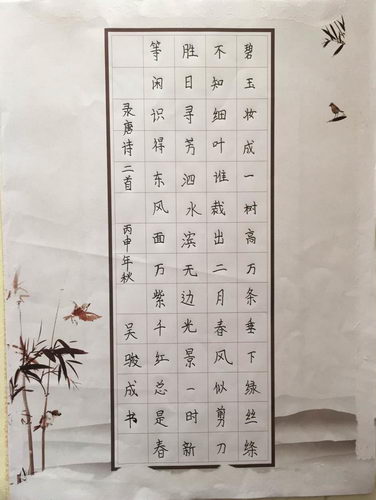 碧玉妆成一树高万条垂下绿丝绦
不知细叶谁裁出二月春风似剪刀
胜日寻芳泗水滨无边光景一时新
等闲识得东风面万紫千红总是春
录唐诗二首 丙申年秋 吴骏成书